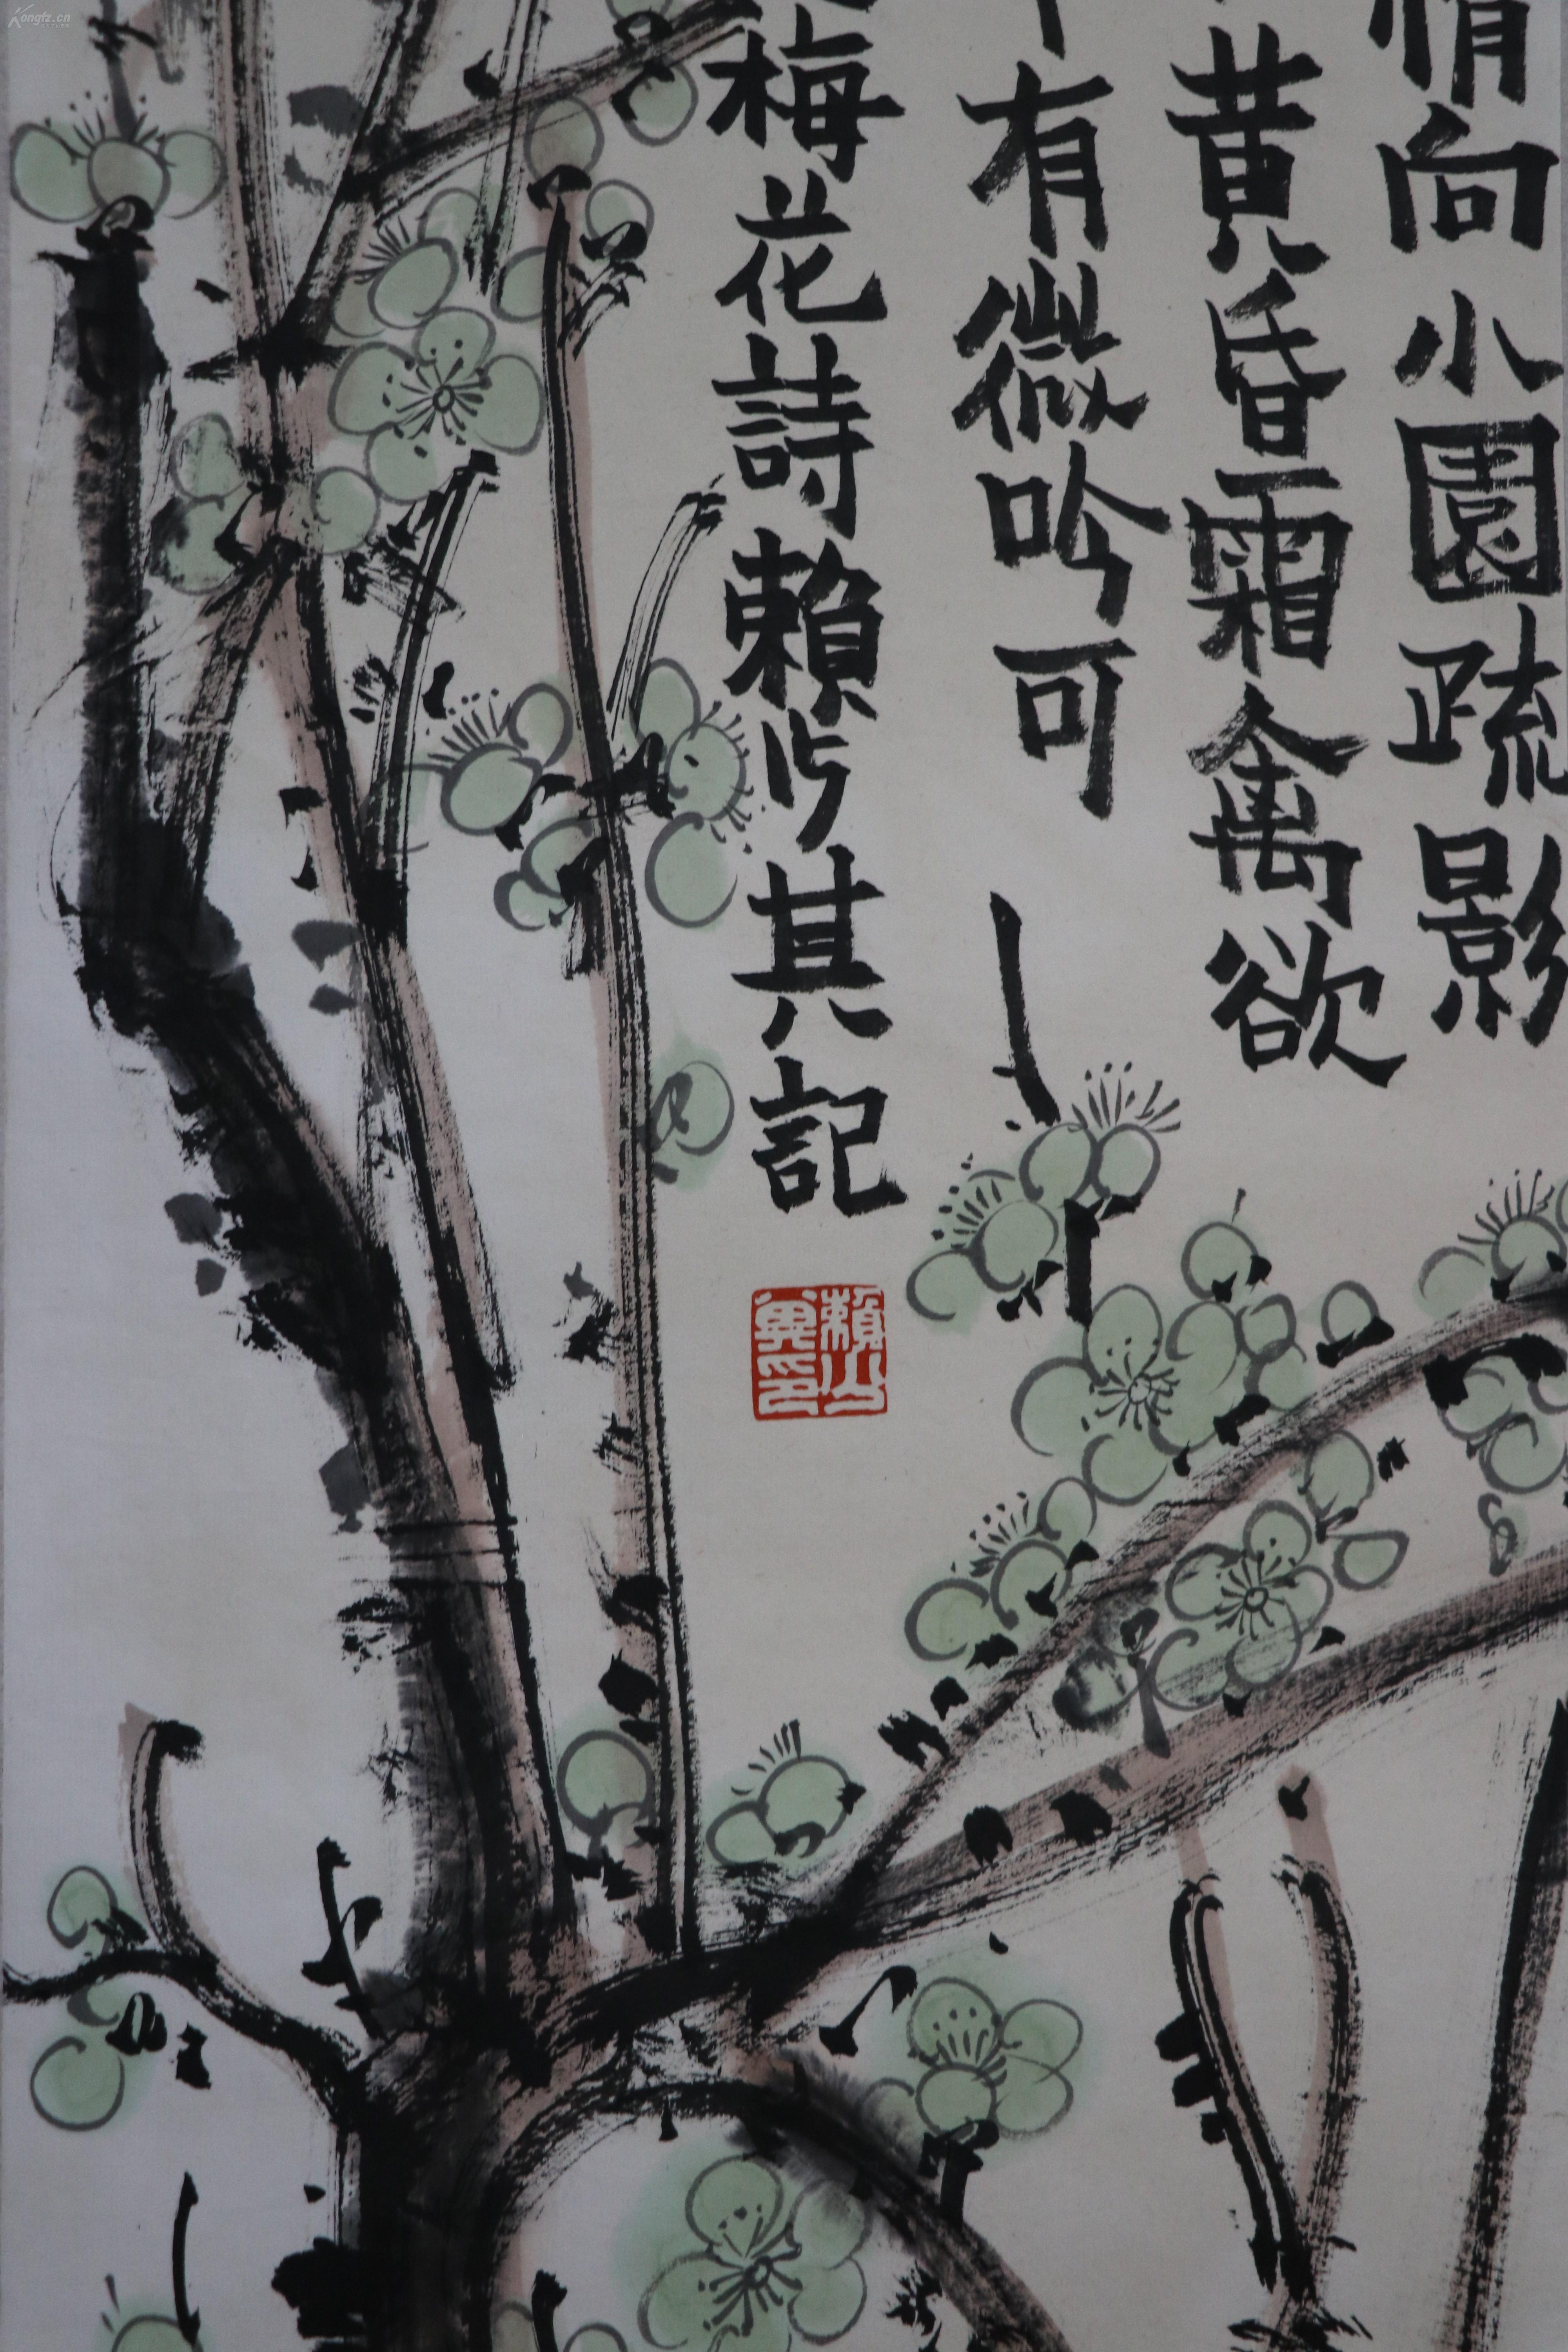 情向小園疏影
黄昏霜禽欲
有微吟可
梅花詩賴少其記
賴少其印
Kongfz.cn